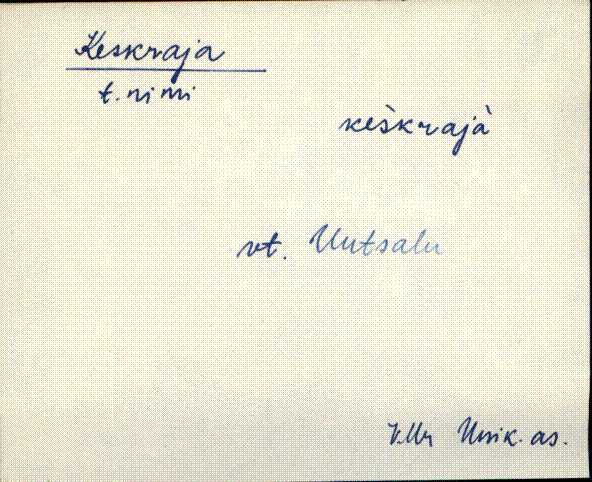 Keskraja
t. nimi
keskrajà
vt. Uutsalu
V.Mr Uusik. as.